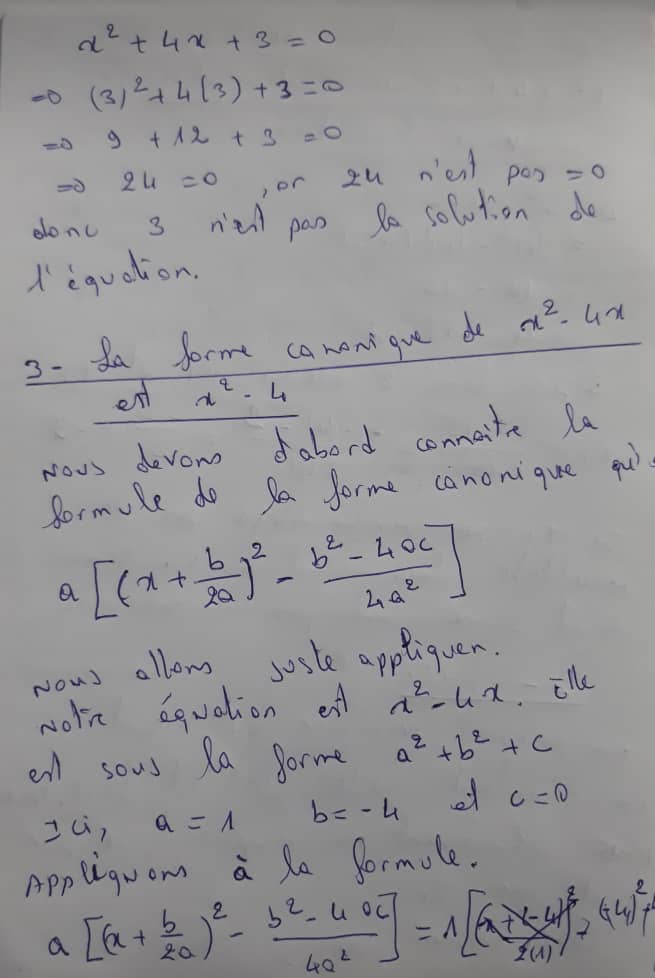 x² + 4x + 3 = 0
=> (3)² + 4(3) + 3 = 0
=> 9 + 12 + 3 = 0
=> 24 = 0 , or 24 n'est pas = 0
donc 3 n'est pas la solution de
l'équation.
3- La forme canonique de x² - 4x
est x² - 4
Nous devons d'abord connaître la
formule de la forme canonique qui
a [(x + b/2a)² - b² - 4ac/4a²]
Nous allons juste appliquer.
Notre équation est x² - 4x. Elle
est sous la forme a² + b² + c
Ici, a = 1 b = -4 et c = 0
Appliquons à la formule.
a [(x + b/2a)² - b² - 4ac/4a²] = 1 [(x + (-4)/2(1))² - (-4)²